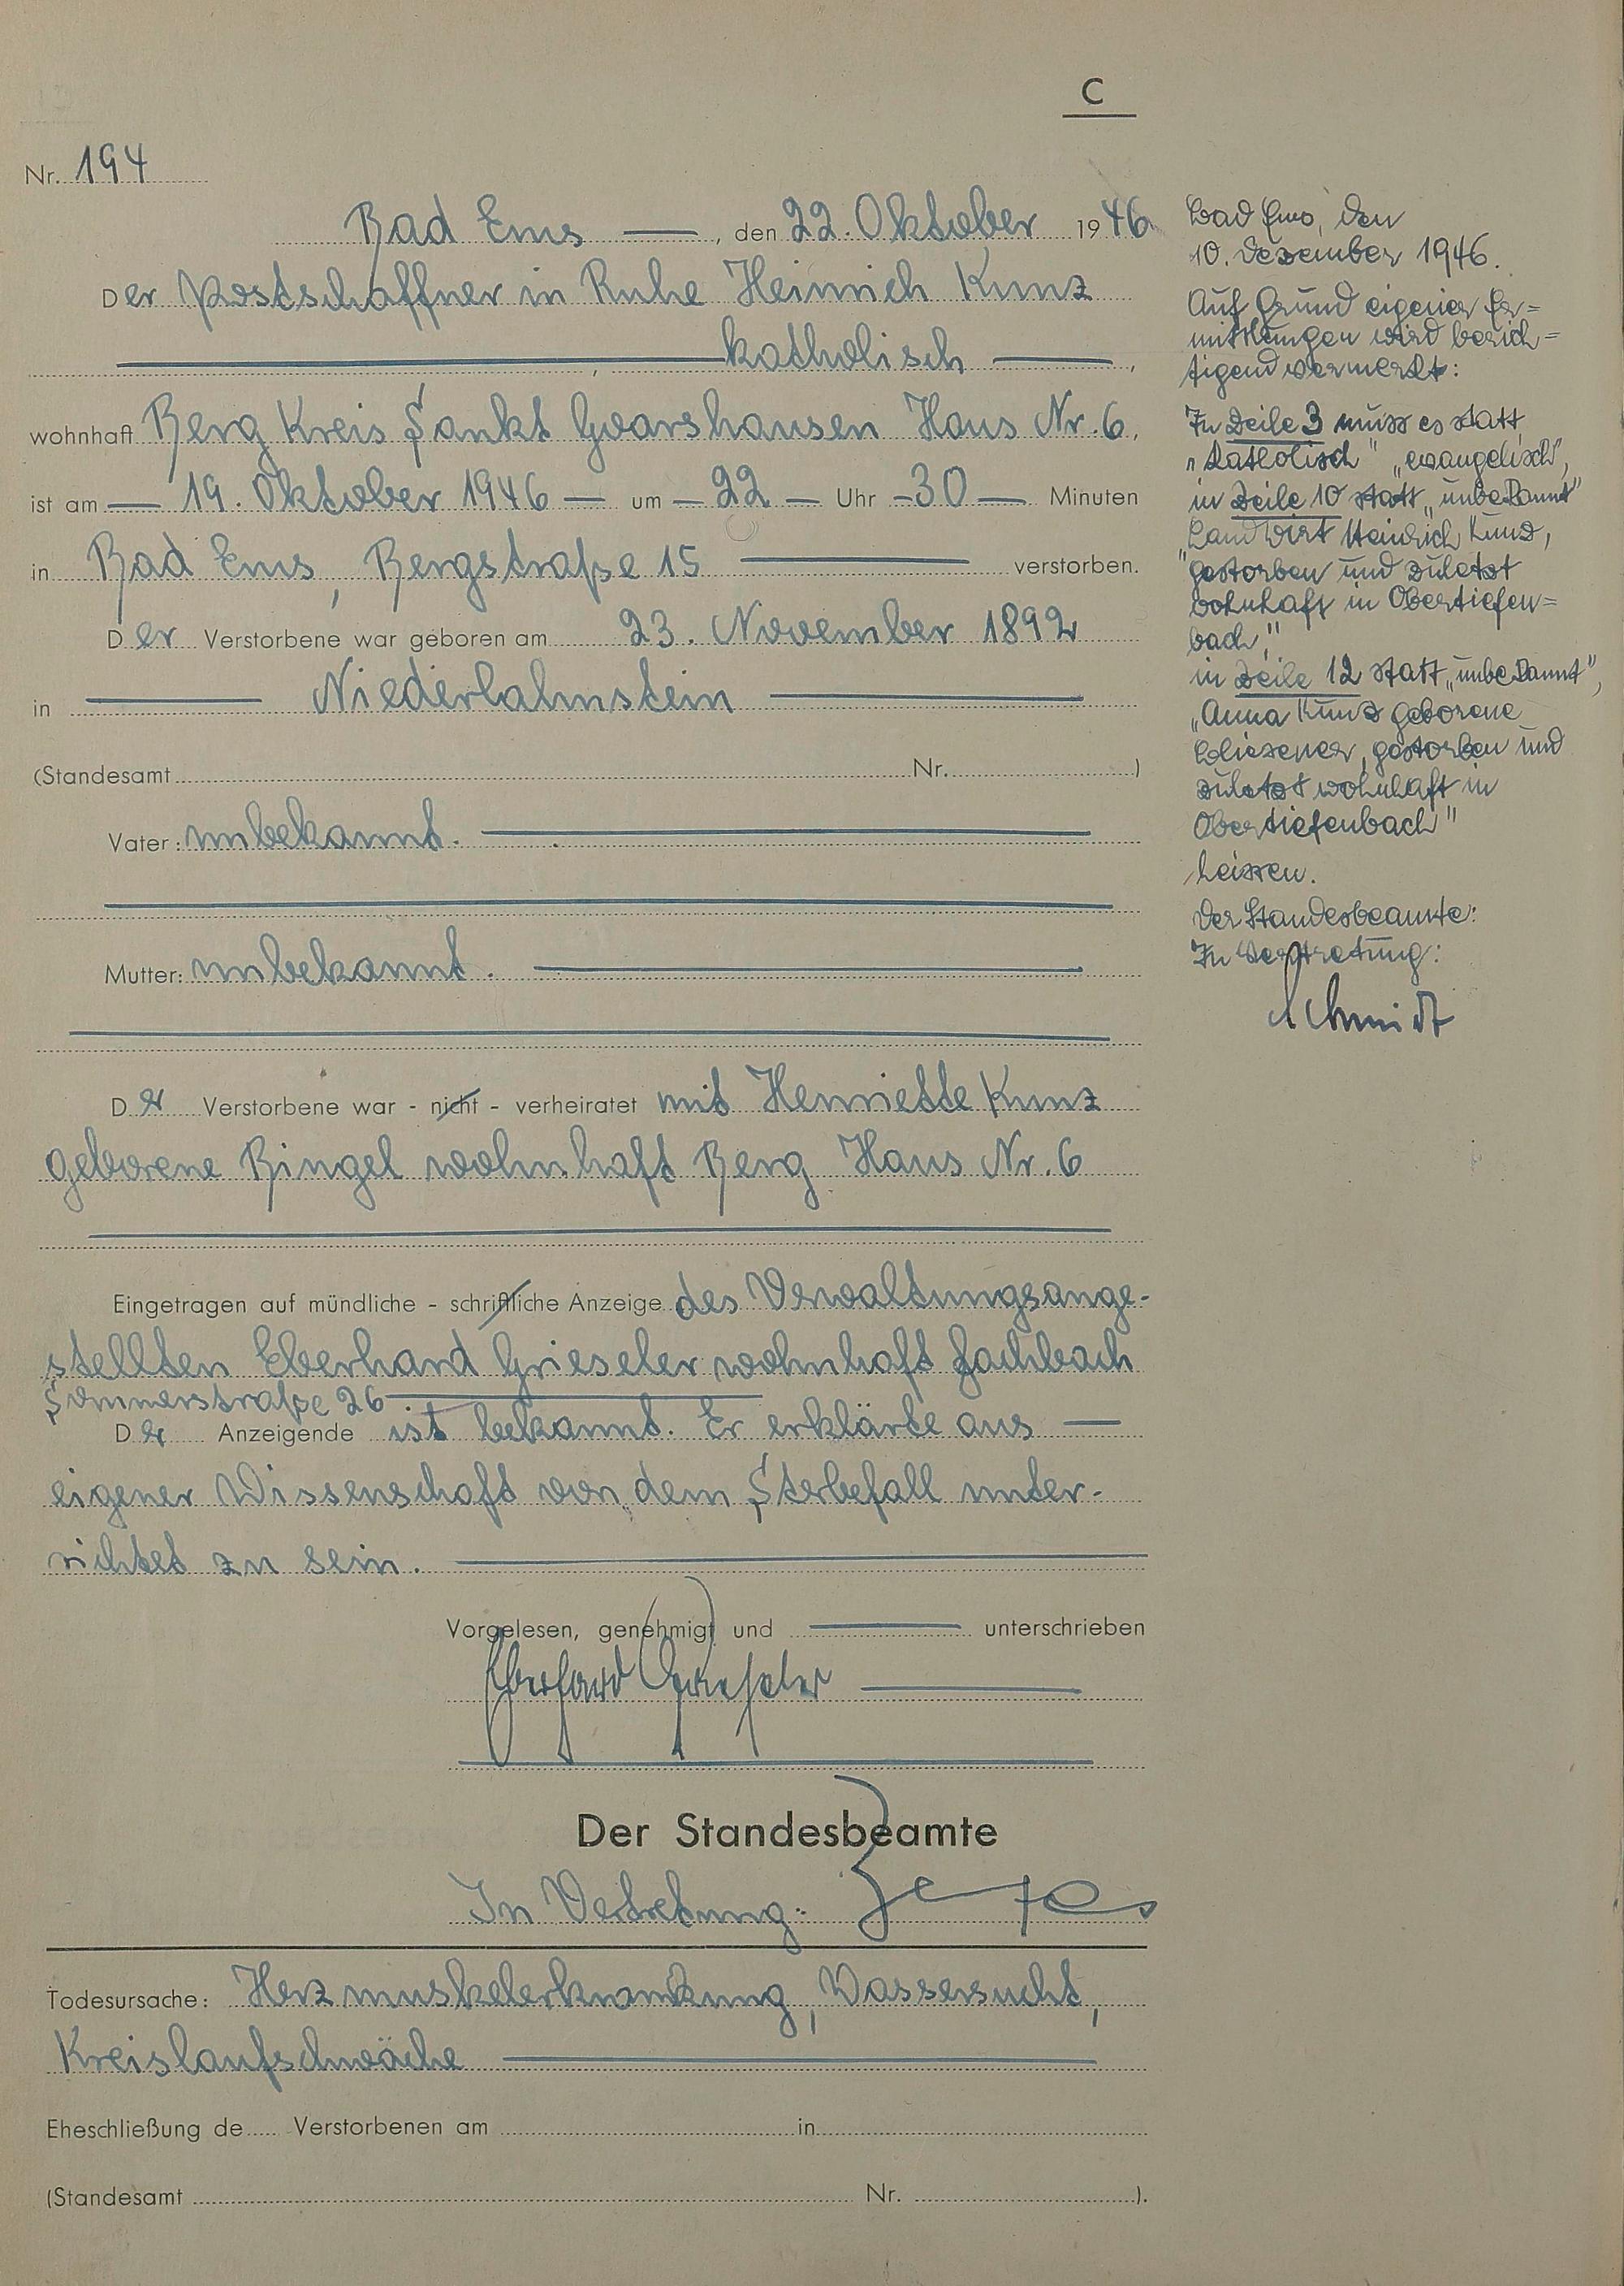 C
Nr. 194
Bad Ems —, den 22. Oktober 1946
Der Postschaffner in Ruhe Heinrich Kunz
—, katholisch —,
wohnhaft Berg Kreis Sankt Goarshausen Haus Nr. 6,
ist am — 19. Oktober 1946 — um — 22 — Uhr — 30 — Minuten
in Bad Ems, Bergstraße 15 — verstorben.
Der Verstorbene war geboren am 23. November 1892
in — Niederlahnstein —
(Standesamt Nr. )
Vater: unbekannt. —
Mutter: unbekannt. —
Der Verstorbene war - nicht - verheiratet mit Henriette Kunz
geborene Bingel wohnhaft Berg Haus Nr. 6
Eingetragen auf mündliche - schriftliche Anzeige des Verwaltungsange-
stellten Eberhard Grieseler wohnhaft Fachbach
Sommerstraße 26 —
Der Anzeigende ist bekannt. Er erklärte aus —
eigener Wissenschaft von dem Sterbefall unter-
richtet zu sein. —
Vorgelesen, genehmigt und — unterschrieben
Eberhard Grieseler —
Der Standesbeamte
In Vertretung:
Todesursache: Herzmuskelerkrankung, Wassersucht,
Kreislaufschwäche —
Eheschließung de Verstorbenen am in
(Standesamt Nr. ).
Bad Ems, den
10. Dezember 1946.
Auf Grund eigener Er=
mittlungen wird berich=
tigend vermerkt:
In Zeile 3 muss es statt
"katholisch" "evangelisch",
in Zeile 10 statt "unbekannt"
"Landwirt Heinrich Kunz,
gestorben und zuletzt
wohnhaft in Obertiefen=
bach,"
in Zeile 12 statt "unbekannt",
"Anna Kunz geborene
gestorben und
zuletzt wohnhaft in
Obertiefenbach"
heissen.
Der Standesbeamte:
In Vertretung:
Schmidt